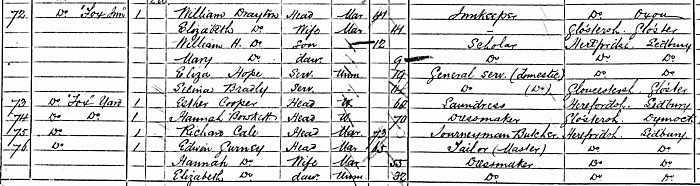 72 Do "Fox Inn" 1 William Drayton Head Mar 41 Innkeeper Do Oxon
Elizabeth Do Wife Mar 41 – Glostersh Gloster
William H. Do Son 12 Scholar Herefordsh Ledbury
Mary Do daur 9 Do Do Do
Eliza Hope Serv Unm 19 General Serv. (domestic) Do Do
Selina Bradly Serv. 14 Do (Do) Gloucestersh Gloster
73 Do "Fox" Yard 1 Esther Cooper Head W. 60 Laundress Herefordsh Ledbury
74 Do Do 1 Hannah Bowkett Head W. 70 Dressmaker Glostersh Dymock
75 Do 1 Richard Cale Head Mar 73 Journeyman Butcher Herefordsh Ledbury
76 Do 1 Edwin Gurney Head Mar 65 Tailor (Master) Do Do
Hannah Do Wife Mar 55 Dressmaker Do Do
Elizabeth Do daur Unm 32 Do Do Do